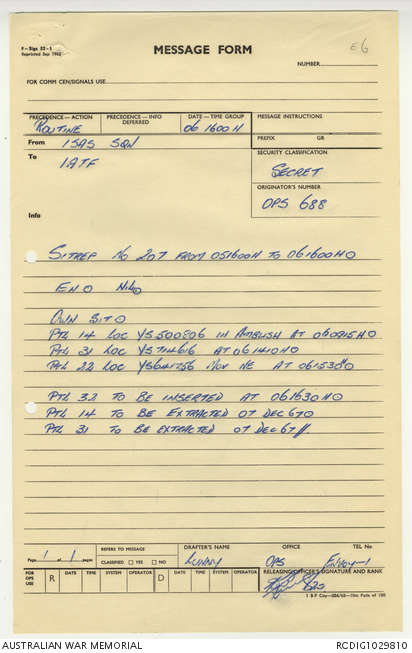 F-Sigs 52-1
Reprinted Sep 1962
MESSAGE FORM
E6
NUMBER
FOR COMM CEN/SIGNALS USE
PRECEDENCE—ACTION PRECEDENCE—INFO DEFERRED DATE—TIME GROUP MESSAGE INSTRUCTIONS
ROUTINE 061600H
PREFIX GR
From 1SAS SQN
To 1ATF
SECURITY CLASSIFICATION
SECRET
ORIGINATOR'S NUMBER
OPS 688
Info
SITREP No 207 FROM 051600H TO 061600H⊙
EN⊙ NIL⊙
OWN SIT⊙
PTL 14 LOC YS500806 IN AMBUSH AT 060915H⊙
PTL 31 LOC YS714616 AT 061410H⊙
PTL 22 LOC MOV NE AT 061530H⊙
PTL 32 TO BE INSERTED AT 061630H⊙
PTL 14 TO BE EXTRACTED 07 DEC 67⊙
PTL 31 TO BE EXTRACTED 07 DEC 67 //
Page 1 of 1 pages
REFERS TO MESSAGE
CLASSIFIED □ YES □ NO
DRAFTER'S NAME OFFICE TEL No
LUNNY OPS ENVOY-1
FOR OPS USE R DATE TIME SYSTEM OPERATOR D DATE TIME SYSTEM OPERATOR RELEASING OFFICER'S SIGNATURE AND RANK
AUSTRALIAN WAR MEMORIAL RCDIG1029810